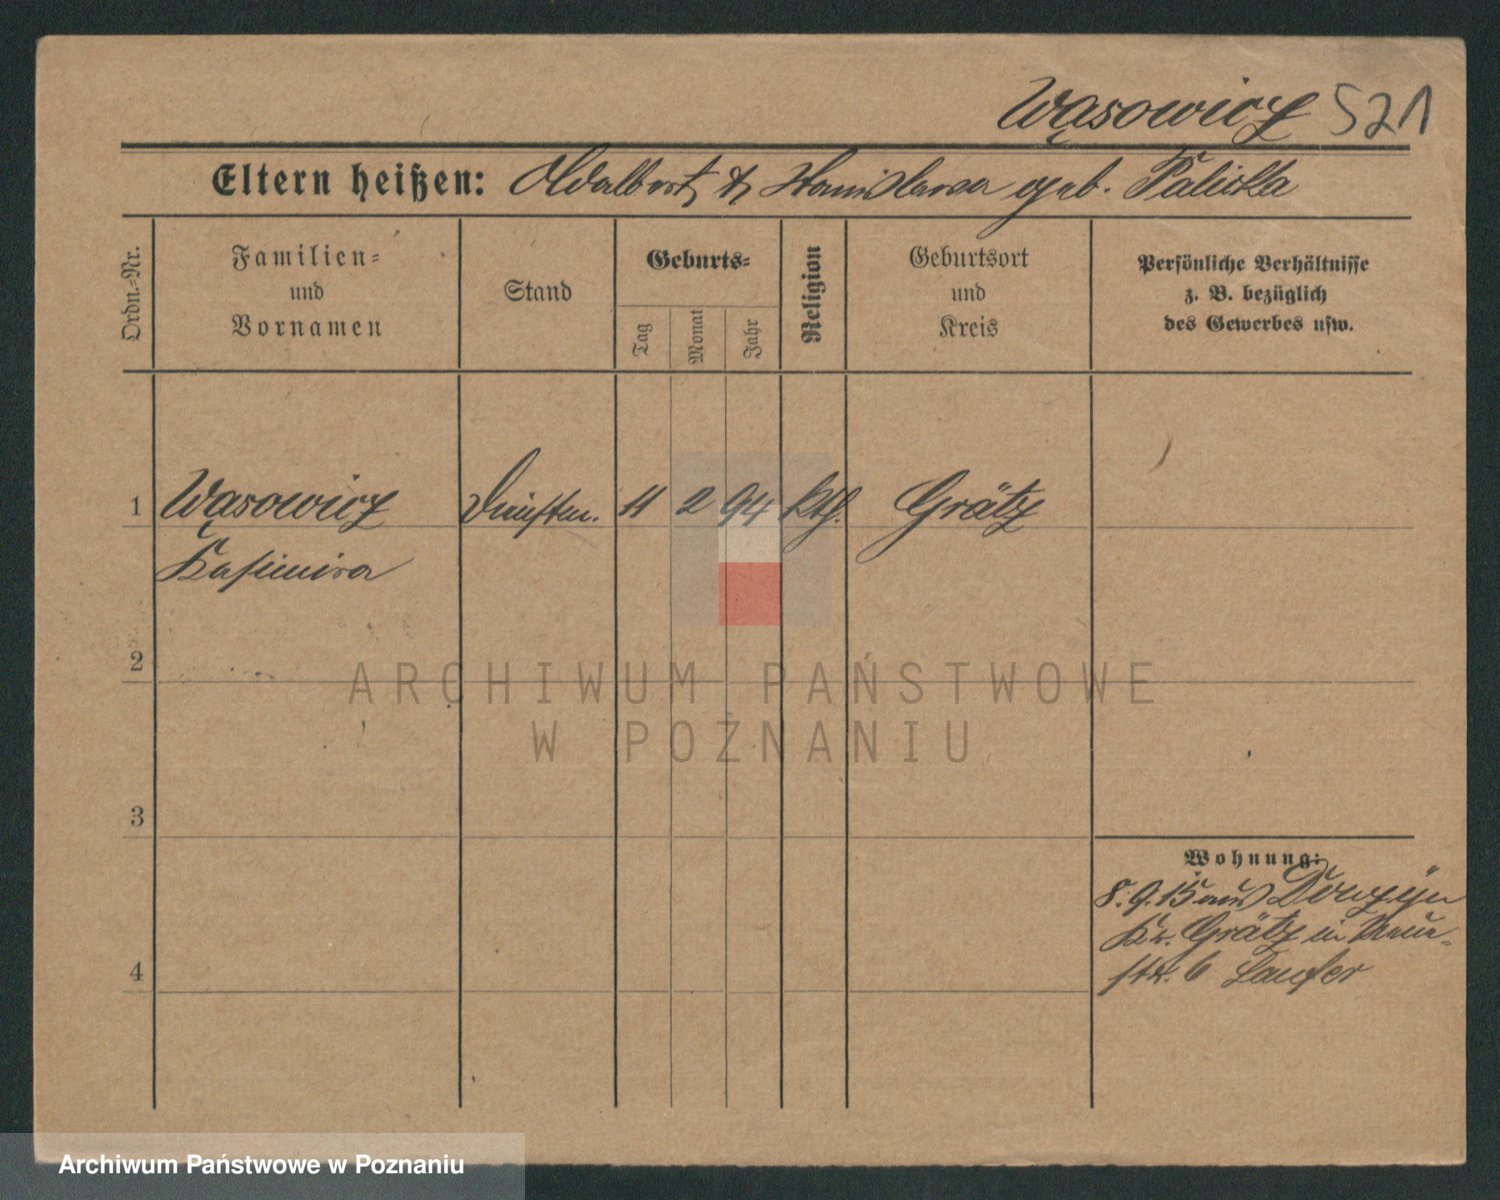 Wąsowicz 521
Eltern heißen: Adalbert & Stanislawa geb. Palicka
Ordn.-Nr.
Familien-
und
Vornamen
Stand
Geburts-
Tag
Monat
Jahr
Religion
Geburtsort
und
Kreis
Persönliche Verhältnisse
z. B. bezüglich
des Gewerbes usw.
1 Wąsowicz 11 2 94 kth. Grätz
Kasimira
2
3
4
Wohnung:
8.9.15 aus
Kr. Grätz in Neue-
str. 6 Laufer
ARCHIWUM PAŃSTWOWE
W POZNANIU
Archiwum Państwowe w Poznaniu